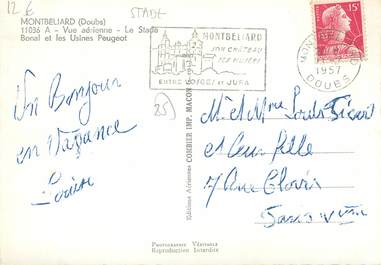 12 €
STADE
MONTBELIARD (Doubs)
11036 A - Vue aérienne - Le Stade
Bonal et les Usines Peugeot
MONTBELIARD
SON CHÂTEAU
SES MUSÉES
ENTRE VOSGES ET JURA
15F
1957
DOUBS
25)
Un Bonjour
en Vacance
Louise
Editions Aériennes COMBIER IMP. MACON
M. et Mme Louis
et Leur fille
7 Rue Clovis
PHOTOGRAPHIE VÉRITABLE
Reproduction Interdite